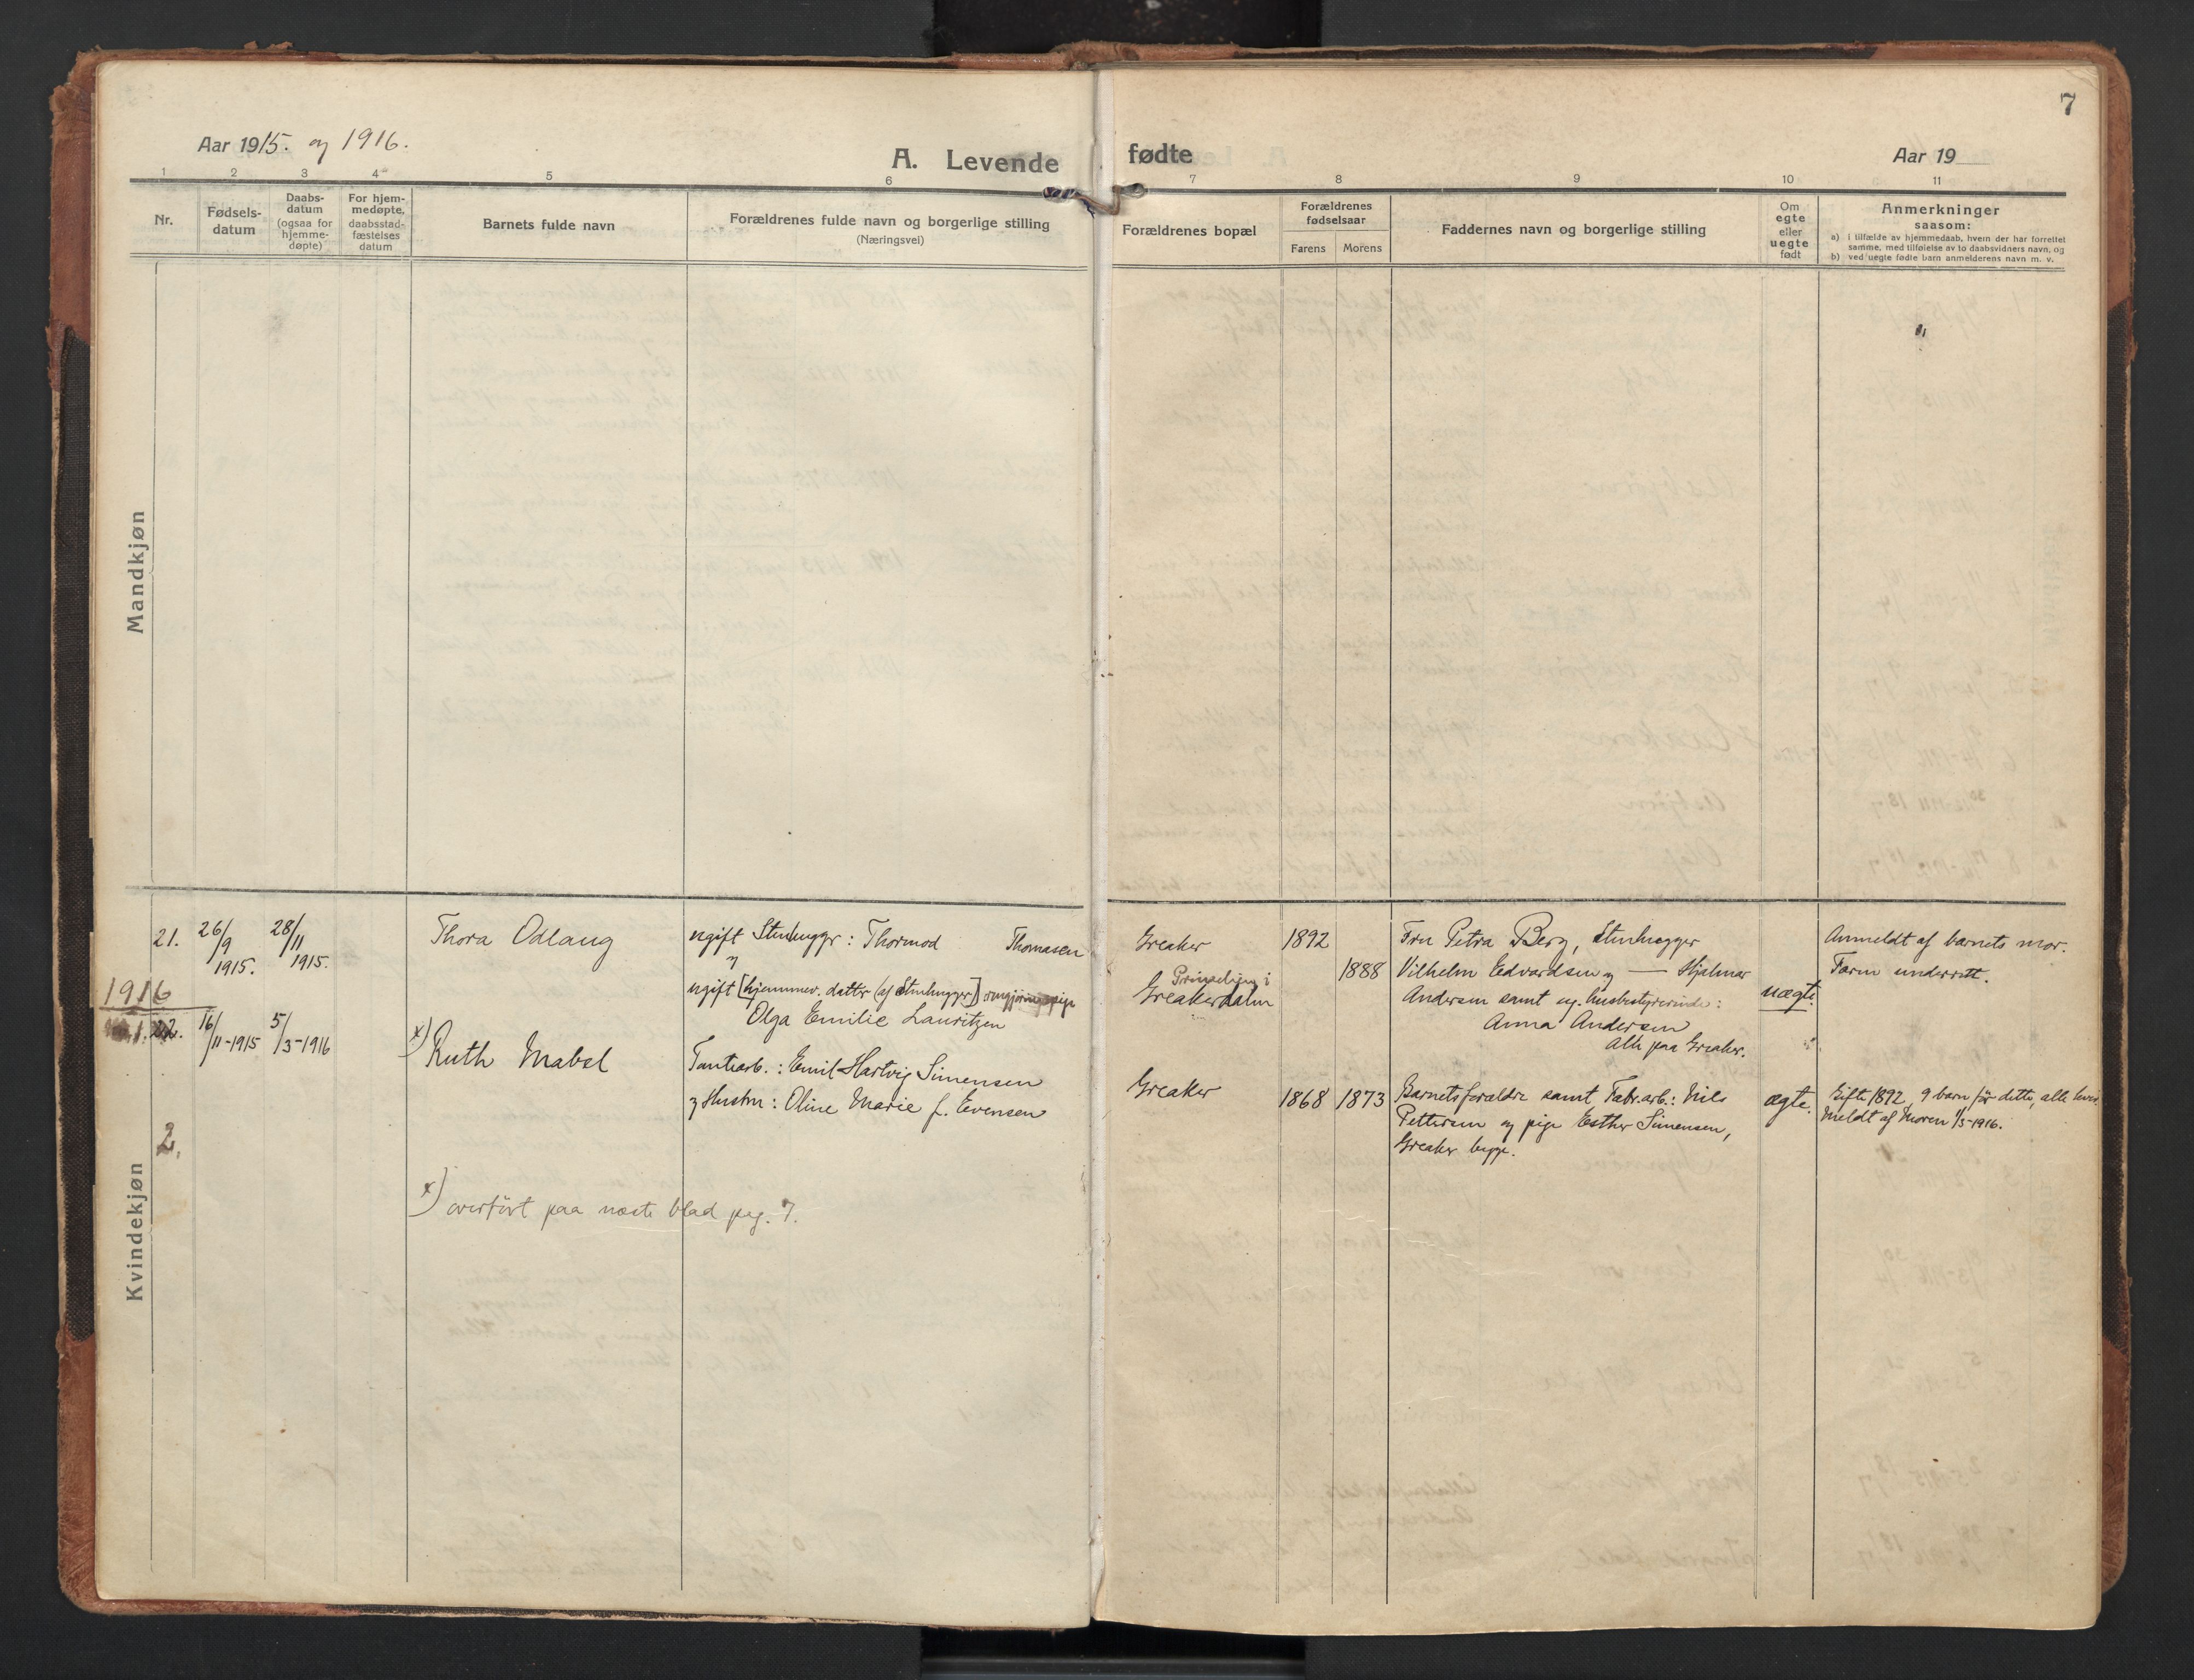 7
Aar 1915. og 1916.
A. Levende fødte
Aar 19
1 2 3 4 5 6 7 8 9 10 11
Nr.
Fødsels-
datum
Daabs-
datum
(ogsaa for
hjemme-
døpte)
For hjem-
medøpte,
daabsstad-
fæstelses
datum
Barnets fulde navn
Forældrenes fulde navn og borgerlige stilling
(Næringsvei)
Forældrenes bopæl
Forældrenes
fødselsaar
Farens
Morens
Faddernes navn og borgerlige stilling
Om
egte
eller
uegte
født
Anmerkninger
saasom:
a) i tilfælde av hjemmedaab, hvem der har forrettet
samme, med tilføielse av to daabsvidners navn, og
b) ved uegte fødte barn anmelderens navn m. v.
Mandkjøn
Kvindekjøn
21.
26/9
1915.
28/11
1915.
Thora Odlaug
ugift Stenhugger: Thormod Thomasen
og
ugift [hjemmev. datter (af Stenhugger)] rengjøringspige
Olga Emilie Lauritzen
Greaker
i
Greakerdalen
1892
1888
Fru Petra Berg, Stenhugger
Vilhelm Edvardsen og — Hjalmar
Andersen samt ug. husbestyrerinde:
Anna Andersen
Alle paa Greaker.
uægte.
Anmeldt af barnets mor.
Faren underrett.
1916
22.
16/11-1915
5/3-1916
x) Ruth Mabel
Tomtearb.: Emil Hartvig Simensen
og Hustru: Oline Marie f. Evensen
Greaker
1868
1873
Barnets forældre samt Fabr.arb.: Nils
Pettersen og pige Esther Simensen,
Greaker begge.
ægte.
Gift 1892, 9 barn før dette, alle lever
Meldt af Moren 1/3-1916.
2.
x) overført paa næste blad pag. 7.